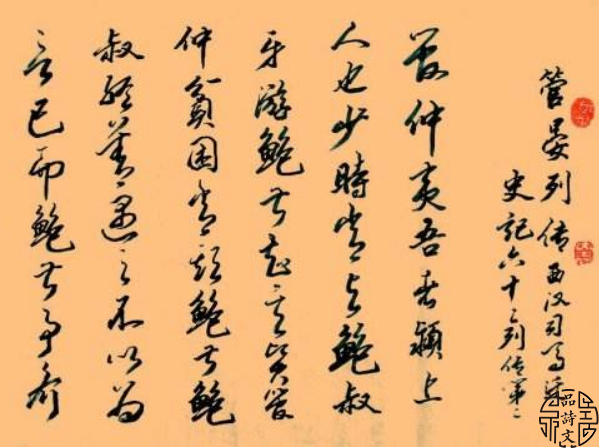 管晏列传 西汉司马迁
史记六十二列传第二
管仲夷吾者颍上
人也少時常与鲍叔
牙游鲍叔知其贤管
仲貧困常欺鲍叔鲍
叔终善遇之不以为
言已而鲍叔事齐
品詩文